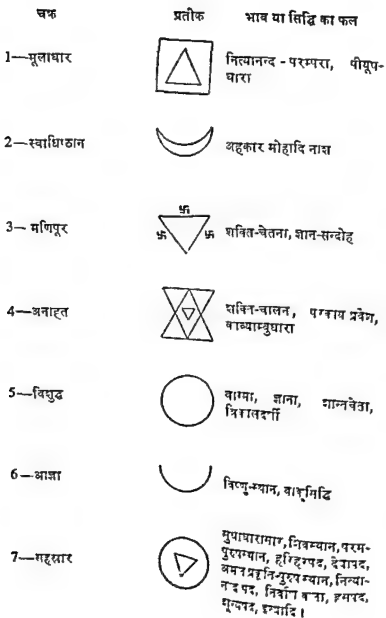 चक्र प्रतीक भाव या सिद्धि का फल
1—मूलाधार नित्यानन्द - परम्परा, पीयूष-
धारा
2—स्वाधिष्ठान अहकार मोहादि नाश
3—मणिपूर शक्ति-चेतना, ज्ञान-सन्दोह
4—अनाहत शक्ति-चालन, परकाय प्रवेश,
काव्याम्बुधारा
5—विशुद्ध वाग्मी, ज्ञाना, शान्तचेता,
त्रिकालदर्शी
6—आज्ञा विष्णु-स्थान, वाक्सिद्धि
7—सहस्रार सुधाधारासार, शिवस्थान, परम-
पुरुषस्थान, हरिहरपद, देवीपद,
प्रकृति-पुरुषस्थान, नित्या-
नन्दपद, निर्वाण हसपद,
शून्यपद, इत्यादि।